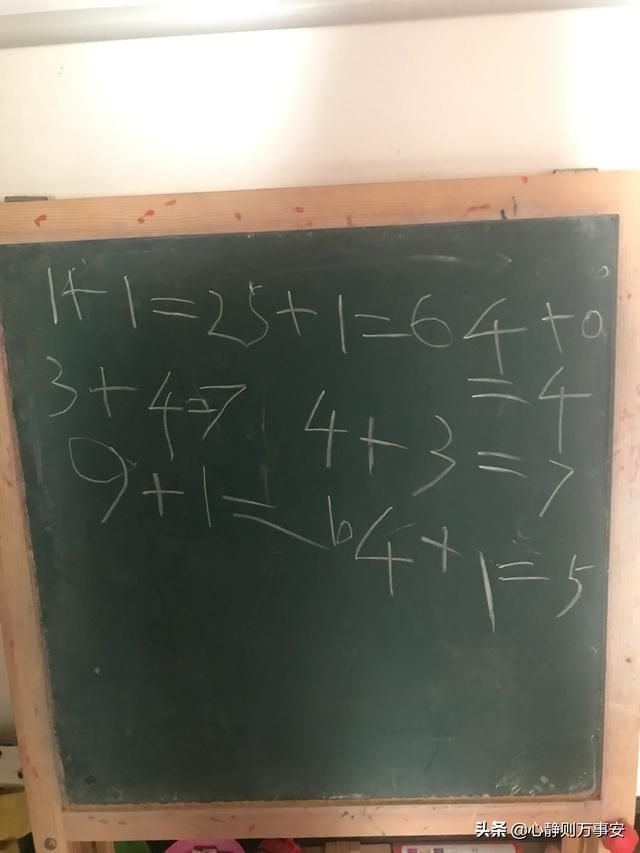 1+1=2 5+1=6 4+0
=4
3+4=7 4+3=7
9+1=10 4+1=5
头条 @心静则万事安